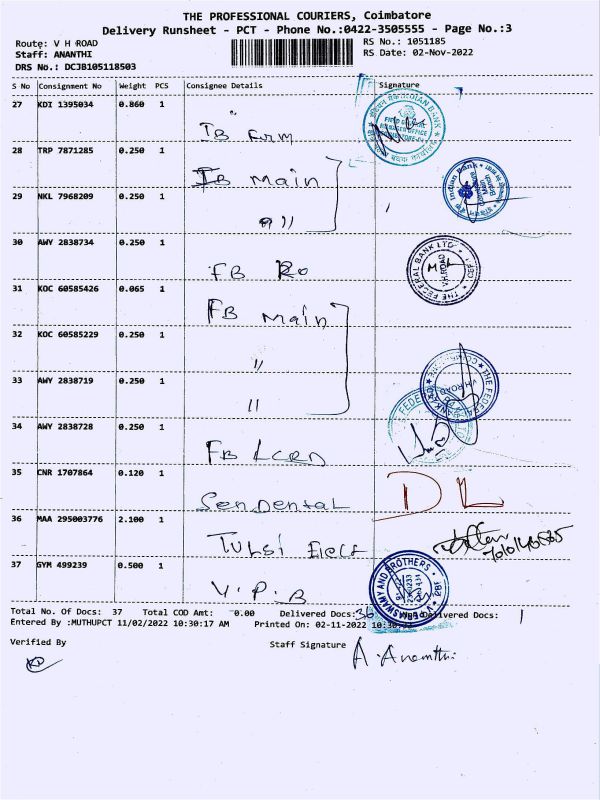 THE PROFESSIONAL COURIERS, Coimbatore
Delivery Runsheet - PCT - Phone No.:0422-3505555 - Page No.:3
Route: V H ROAD RS No.: 1051185
Staff: ANANTHI RS Date: 02-Nov-2022
DRS No.: DCJB105118503
S No Consignment No Weight PCS Consignee Details Signature
27 KDI 1395034 0.860 1
IB
28 TRP 7871285 0.250 1
IB Main
29 NKL 7968209 0.250 1
〃
30 AWY 2838734 0.250 1
FB Ro
THE FEDERAL BANK LTD. V.H.ROAD CBE-1
31 KOC 60585426 0.065 1
FB Main
32 KOC 60585229 0.250 1
〃
33 AWY 2838719 0.250 1
〃
THE FEDERAL BANK V.H.ROAD
34 AWY 2838728 0.250 1
FB LCRD
35 CNR 1707864 0.120 1
Sendental DL
36 MAA 295003776 2.100 1
Tulsi Elect
37 GYM 499239 0.500 1
V.P.B
Total No. Of Docs: 37 Total COD Amt: 0.00 Delivered Docs: 36 Delivered Docs: 1
Entered By :MUTHUPCT 11/02/2022 10:30:17 AM Printed On: 02-11-2022
Verified By Staff Signature A. Ananthi